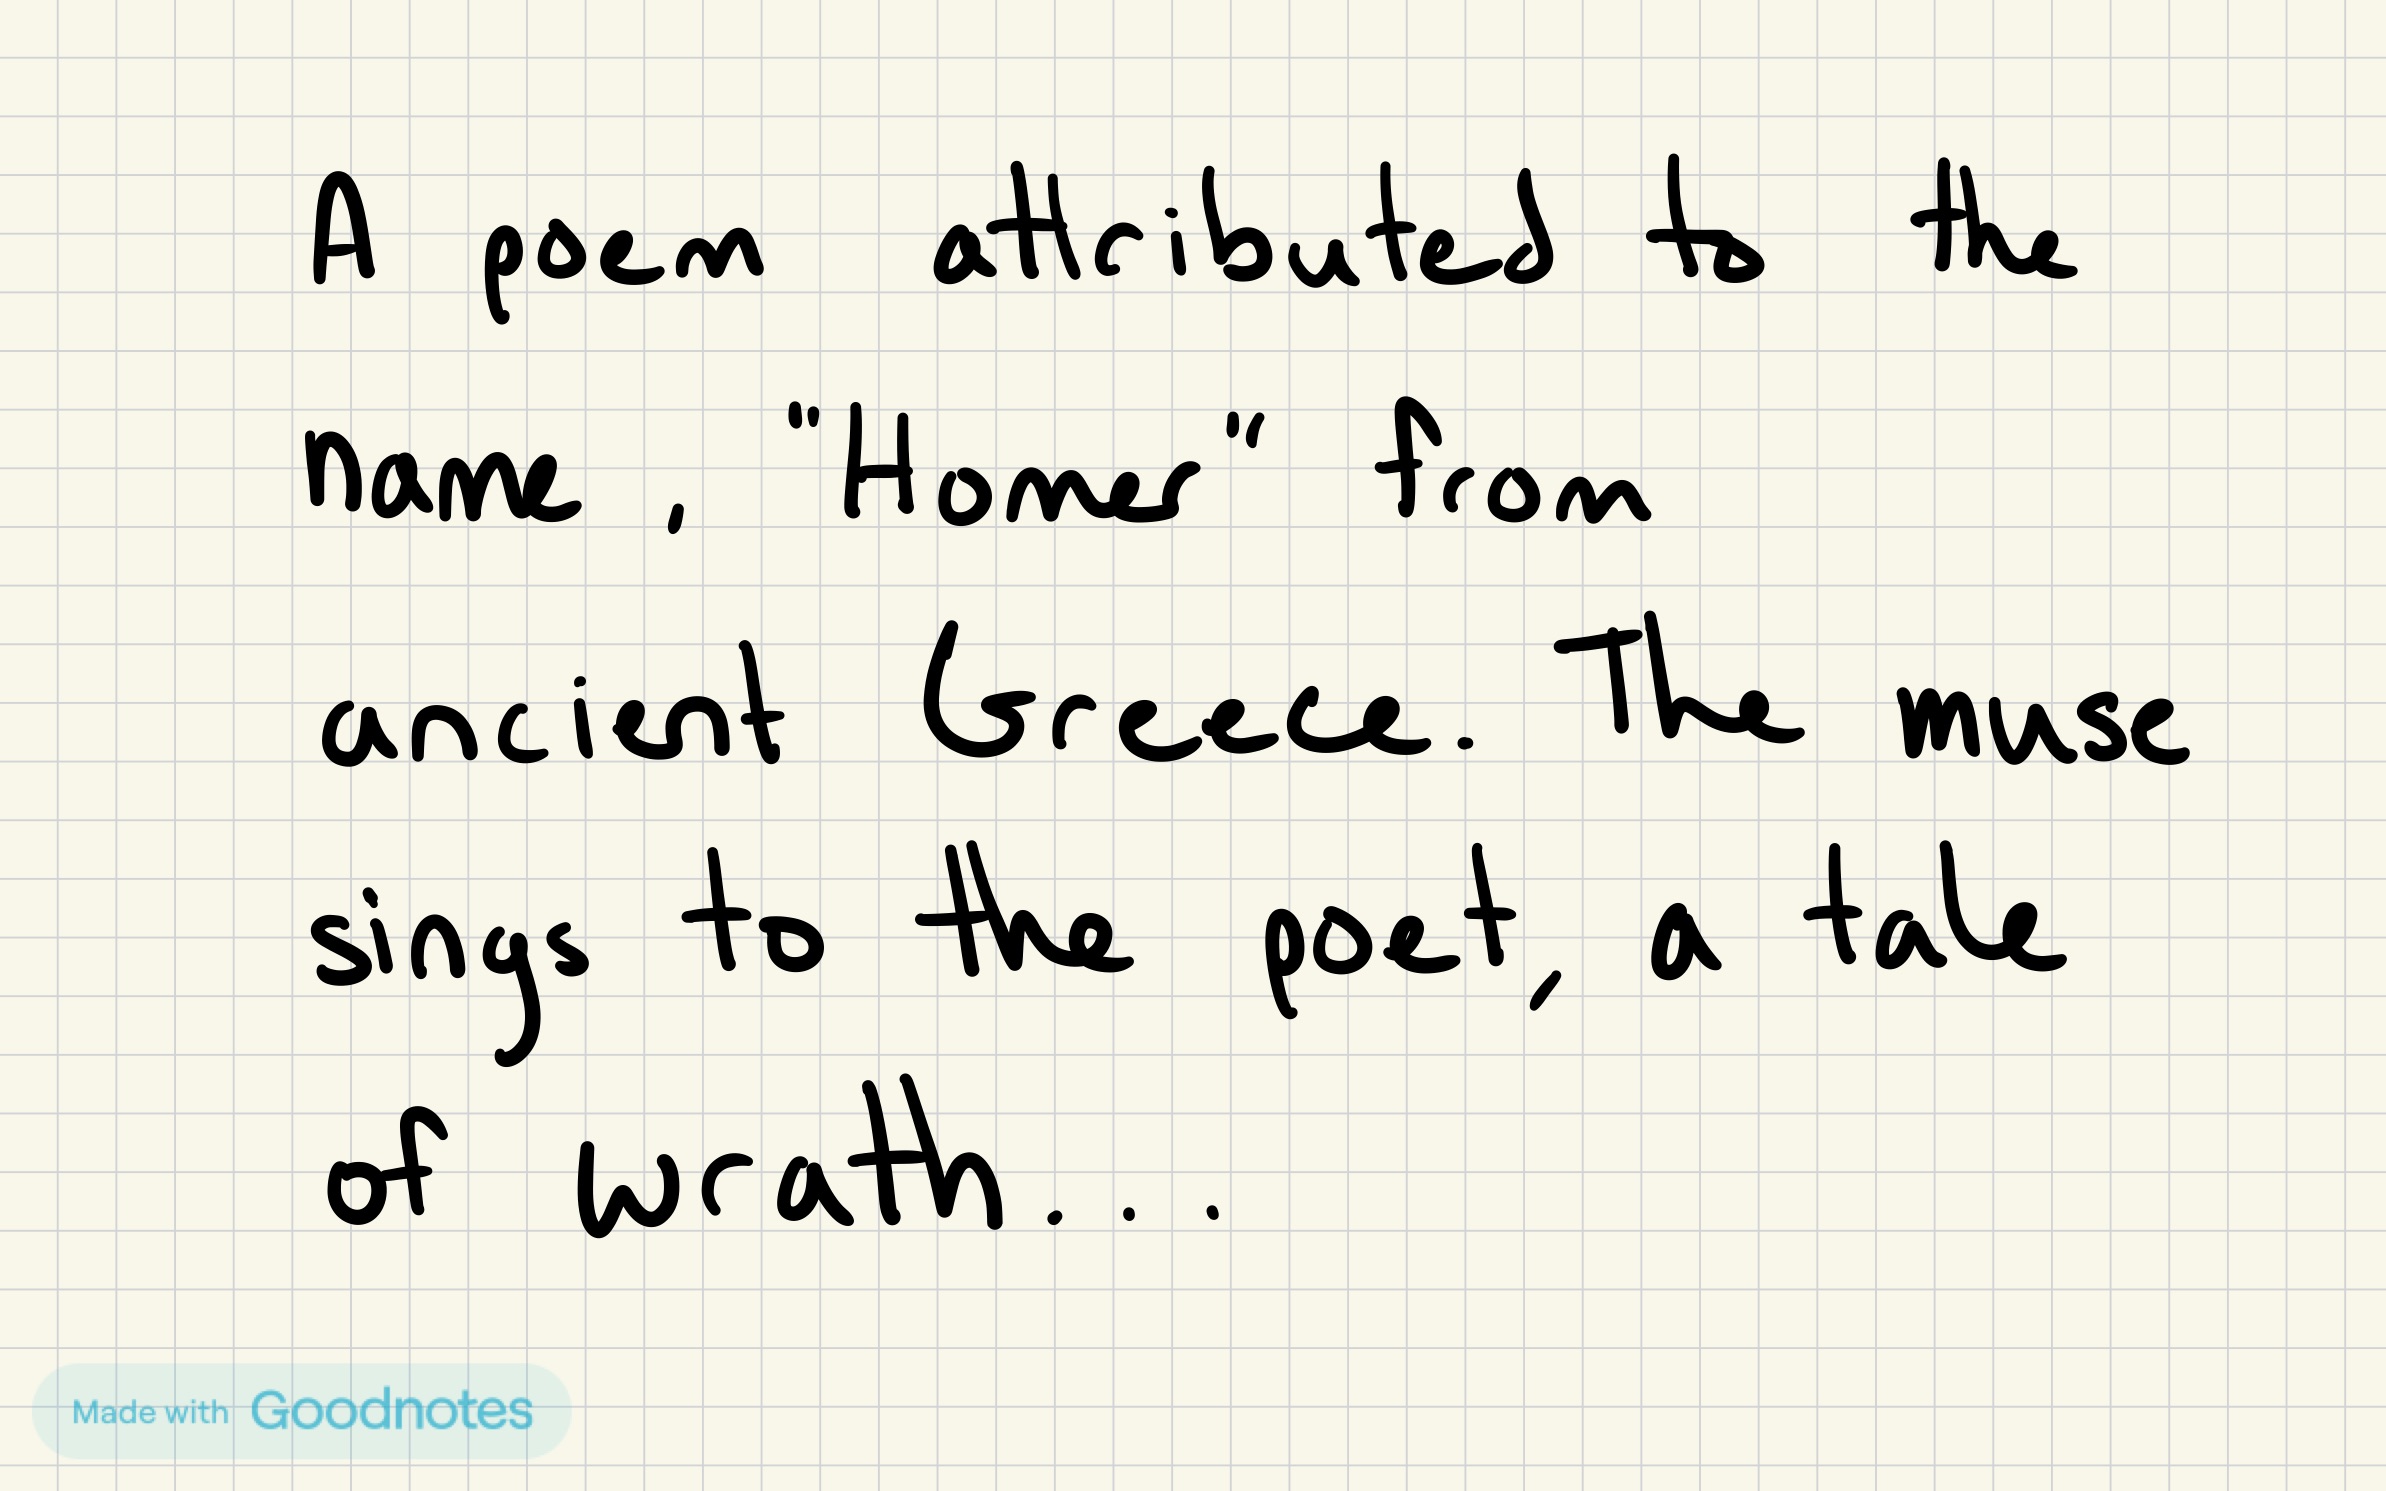 A poem attributed to the
name, "Homer" from
ancient Greece. The muse
sings to the poet, a tale
of wrath...
Made with Goodnotes